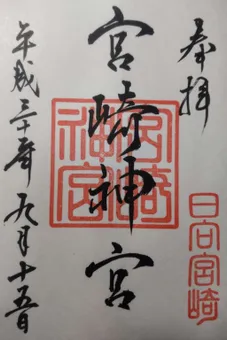 奉拝
宮崎神宮
宮崎神宮
平成三十年九月十五日